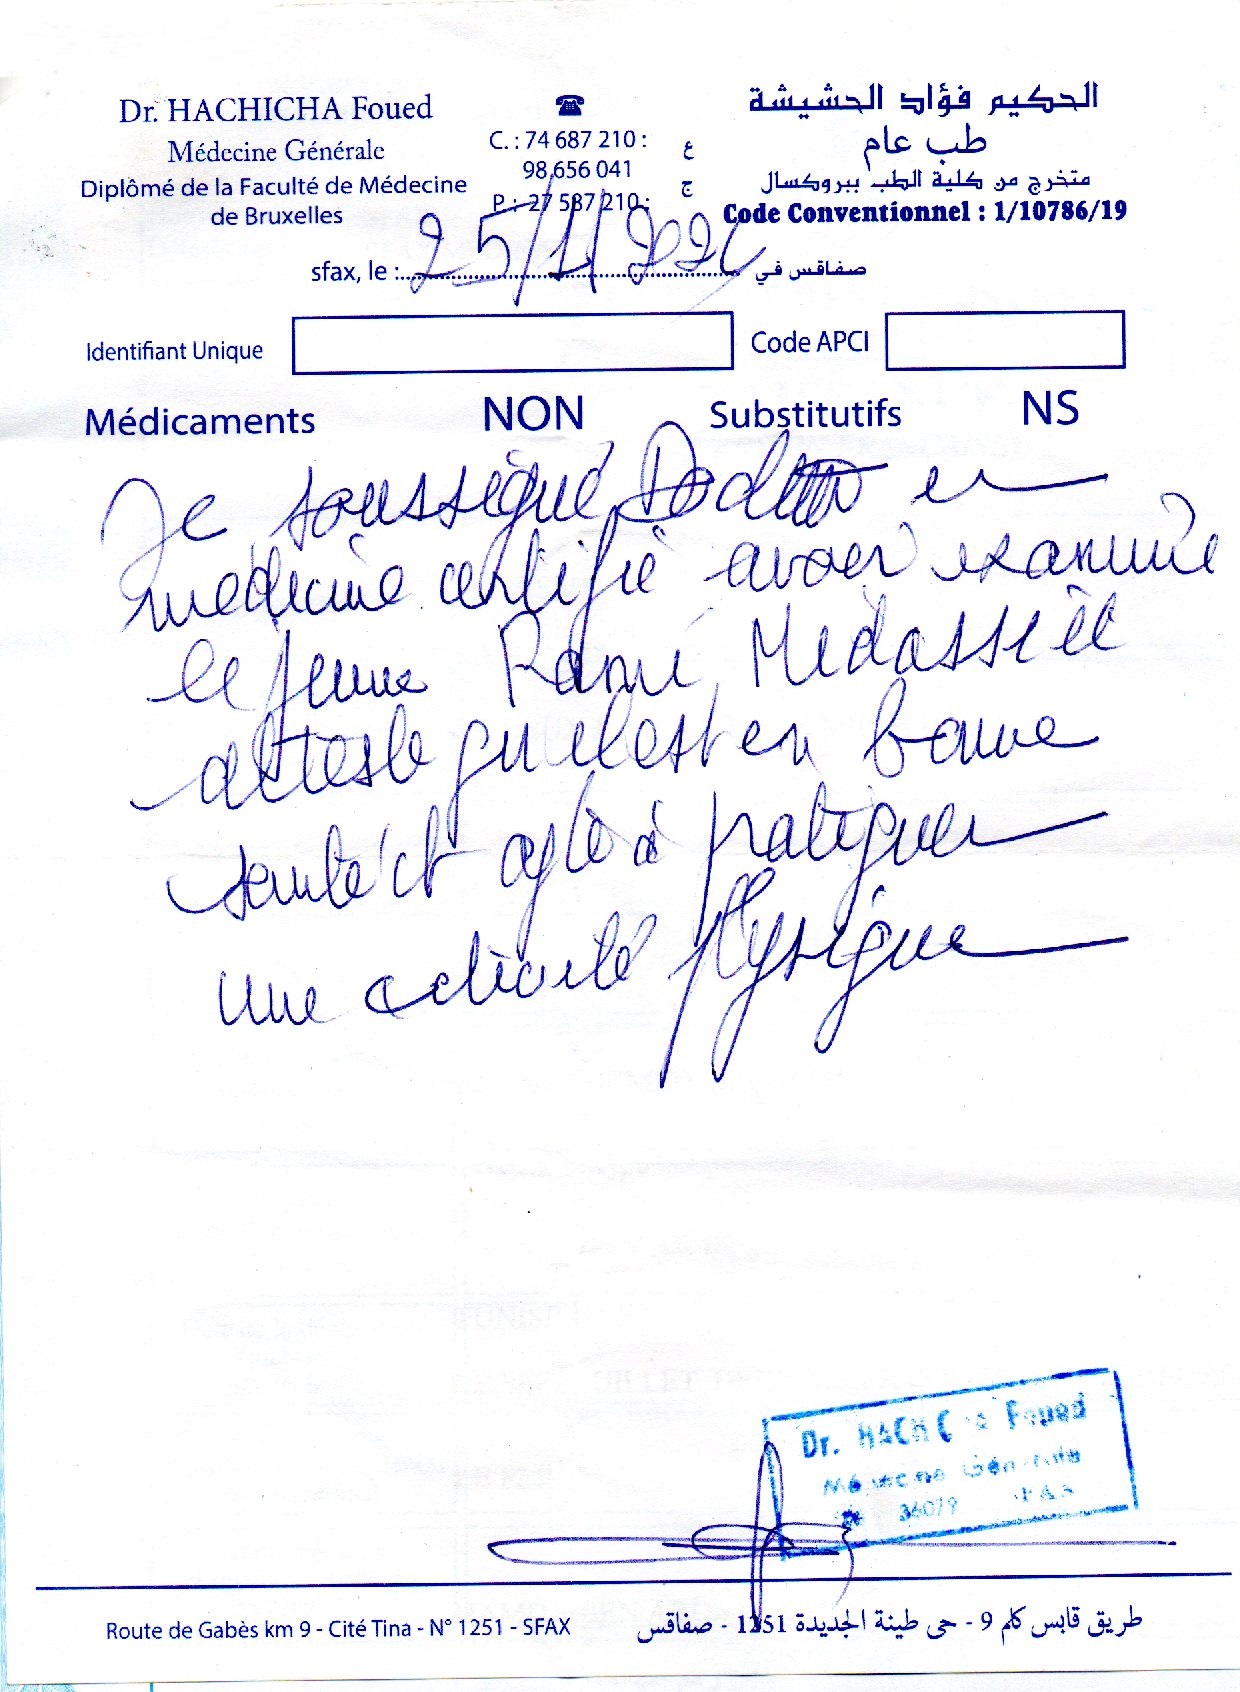 Dr. HACHICHA Foued
Médecine Générale
Diplômé de la Faculté de Médecine
de Bruxelles
☎
C. : 74 687 210 : ع
98 656 041
P. : 27 587 210 : ج
الحكيم فؤاد الحشيشة
طب عام
متخرج من كلية الطب ببروكسال
Code Conventionnel : 1/10786/19
sfax, le : 25/1/202 صفاقس في
Identifiant Unique Code APCI
Médicaments NON Substitutifs NS
Je soussigné en
médecine certifie avoir examiné
le jeune Rami
atteste qu'il est en bonne
santé et apte à pratiquer
une activité physique
Dr. HACHICHA Foued
Médecine Générale
36079 SFAX
Route de Gabès km 9 - Cité Tina - N° 1251 - SFAX
طريق قابس كلم 9 - حي طينة الجديدة 1251 - صفاقس